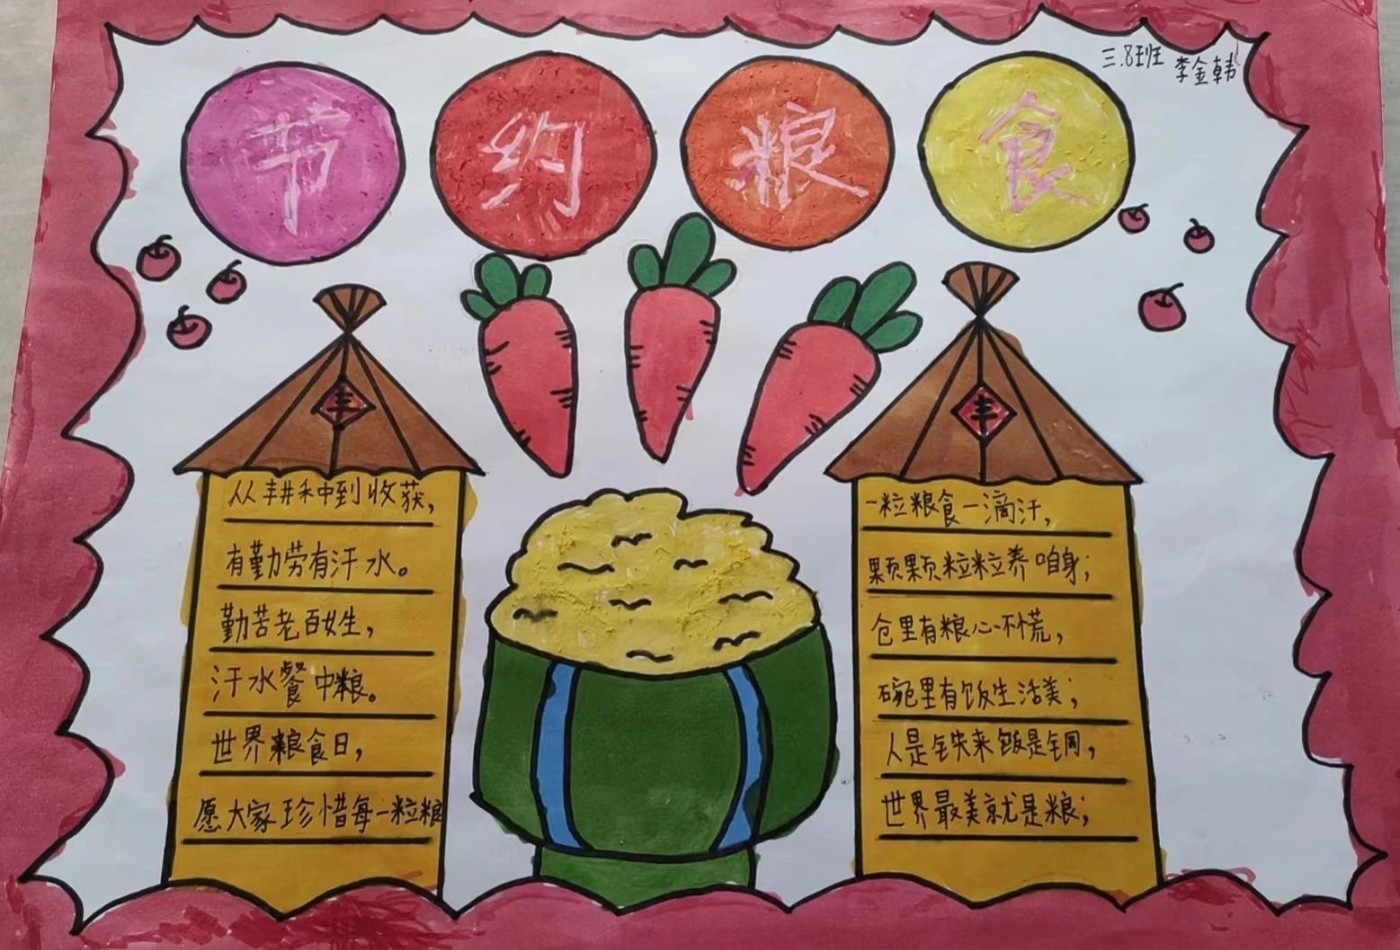 三.8班 李金韩
节约粮食
丰
从耕种到收获，
有勤劳有汗水。
勤苦老百姓，
汗水餐中粮。
世界粮食日，
愿大家珍惜每一粒粮
丰
一粒粮食一滴汗，
颗颗粒粒养咱身；
仓里有粮心不慌，
碗里有饭生活美；
人是铁来饭是钢，
世界最美就是粮；